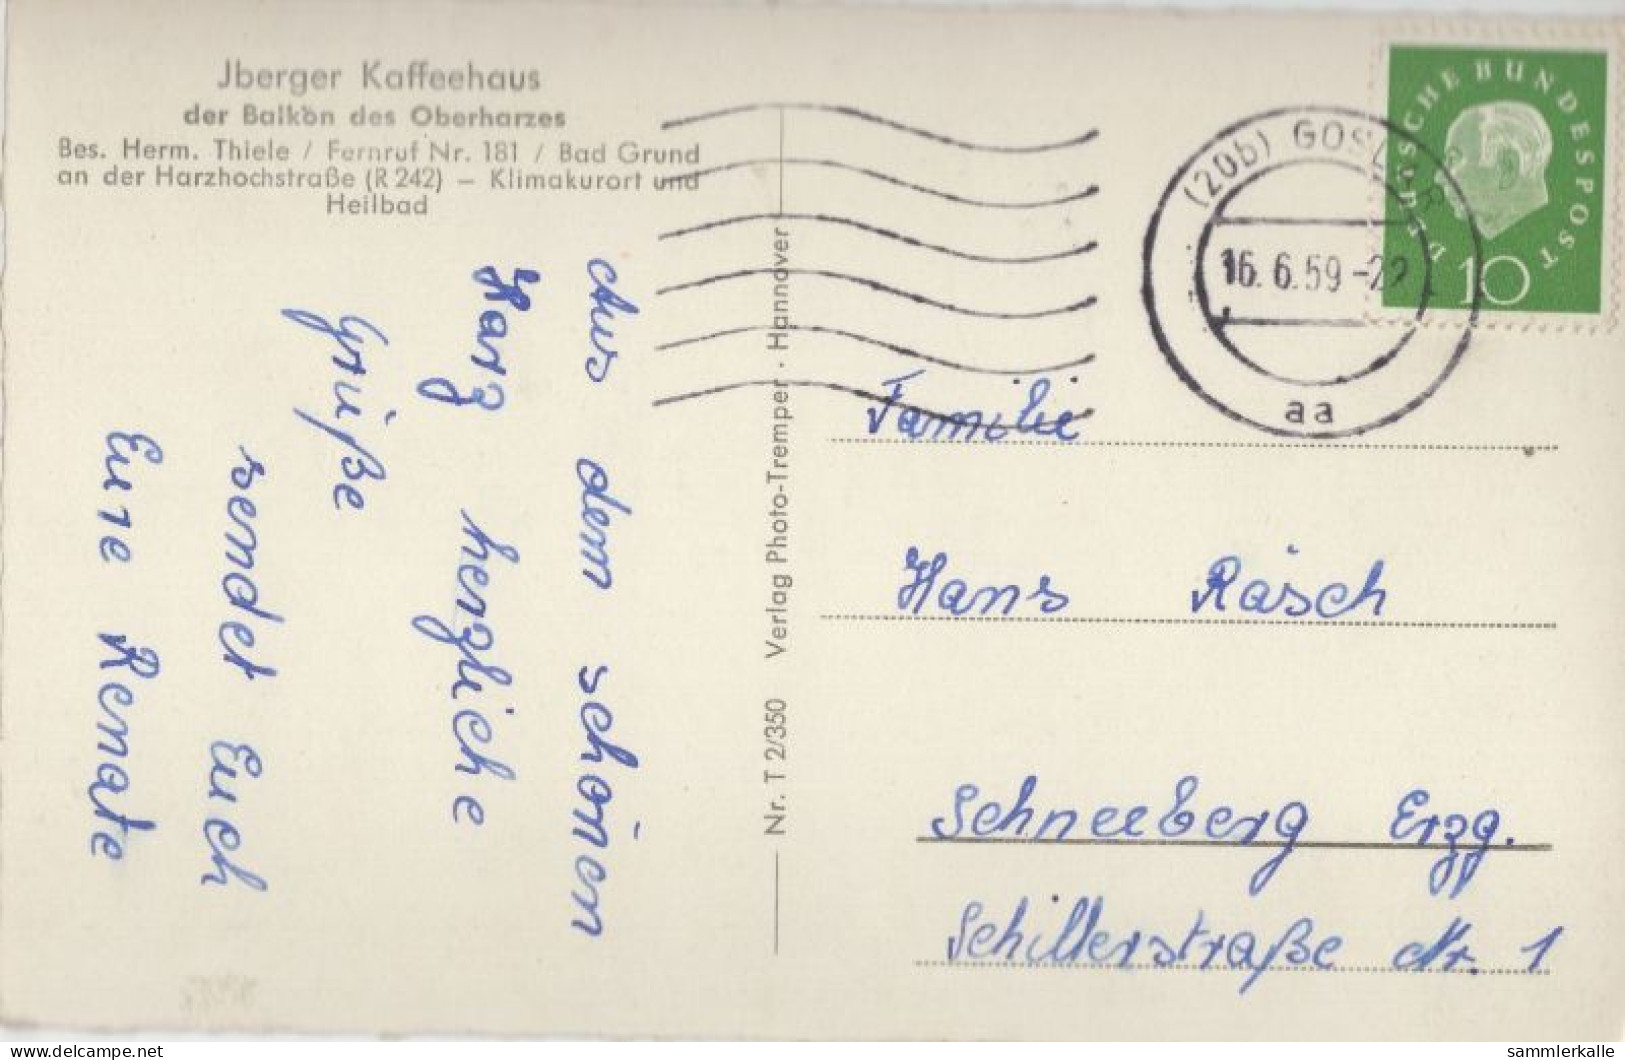 Jberger Kaffeehaus
der Balkon des Oberharzes
Bes. Herm. Thiele / Fernruf Nr. 181 / Bad Grund
an der Harzhochstraße (R 242) – Klimakurort und
Heilbad
Aus dem schönen
Harz herzliche
Grüße
sendet Euch
Eure Renate
Nr. T 2/350 Verlag Photo-Tremper · Hannover
(20b) GOSLAR
16.6.59-22
aa
DEUTSCHE BUNDESPOST
10
Familie
Hans Räsch
Schneeberg Erzg.
Schillerstraße Nr. 1
www.delcampe.net
sammlerkalle